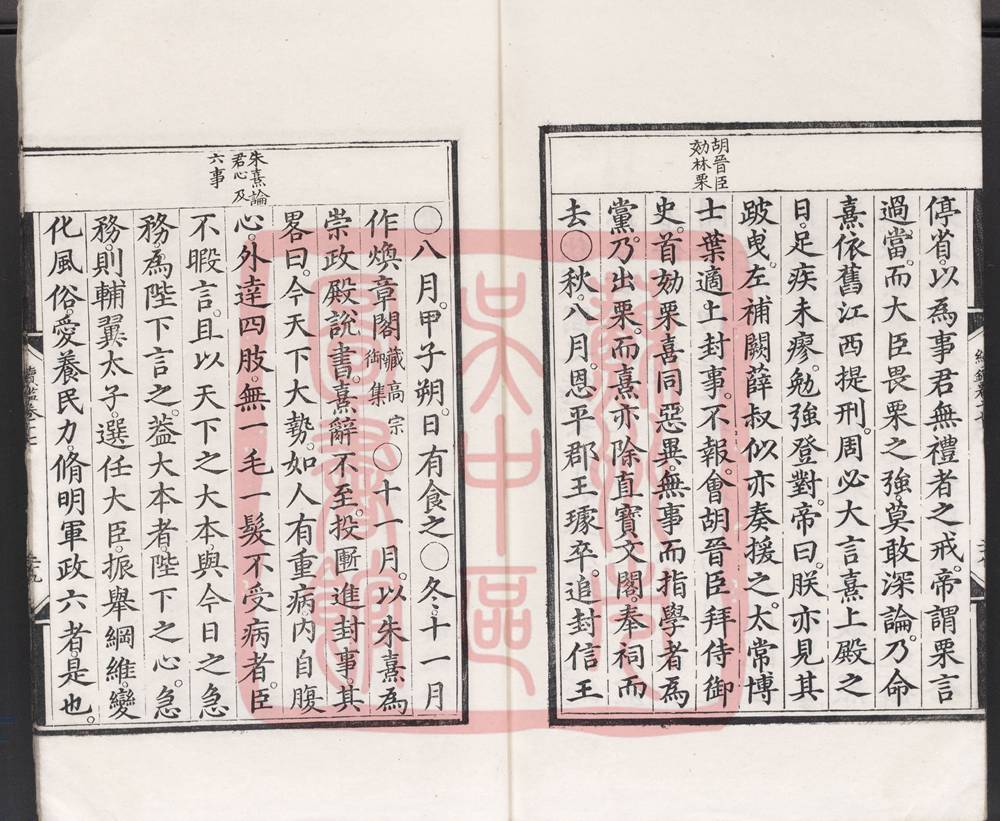 胡晉臣
効林栗
停省以為事君無禮者之戒。帝謂栗言
過當。而大臣畏栗之強。莫敢深論。乃命
熹依舊江西提刑。周必大言熹上殿之
日。足疾未瘳。勉強登對。帝曰。朕亦見其
跛曳。左補闕薛叔似亦奏援之。太常博
士葉適上封事。不報。會胡晉臣拜侍御
史。首劾栗喜同惡異。無事而指學者為
黨。乃出栗。而熹亦除直寶文閣。奉祠而
去〇秋。八月。恩平郡王璩卒。追封信王
朱熹論
君心及
六事
〇八月。甲子朔。日有食之〇冬。十一月
作煥章閣藏高宗御集〇十一月。以朱熹為
崇政殿說書。熹辭不至。投匭進封事。其
畧曰。今天下大勢。如人有重病。內自腹
心。外達四肢。無一毛一髮不受病者。臣
不暇言。且以天下之大本與今日之急
務。為陛下言之。葢大本者。陛下之心。急
務。則輔翼太子。選任大臣。振舉綱維。變
化風俗。愛養民力。脩明軍政六者。是也。